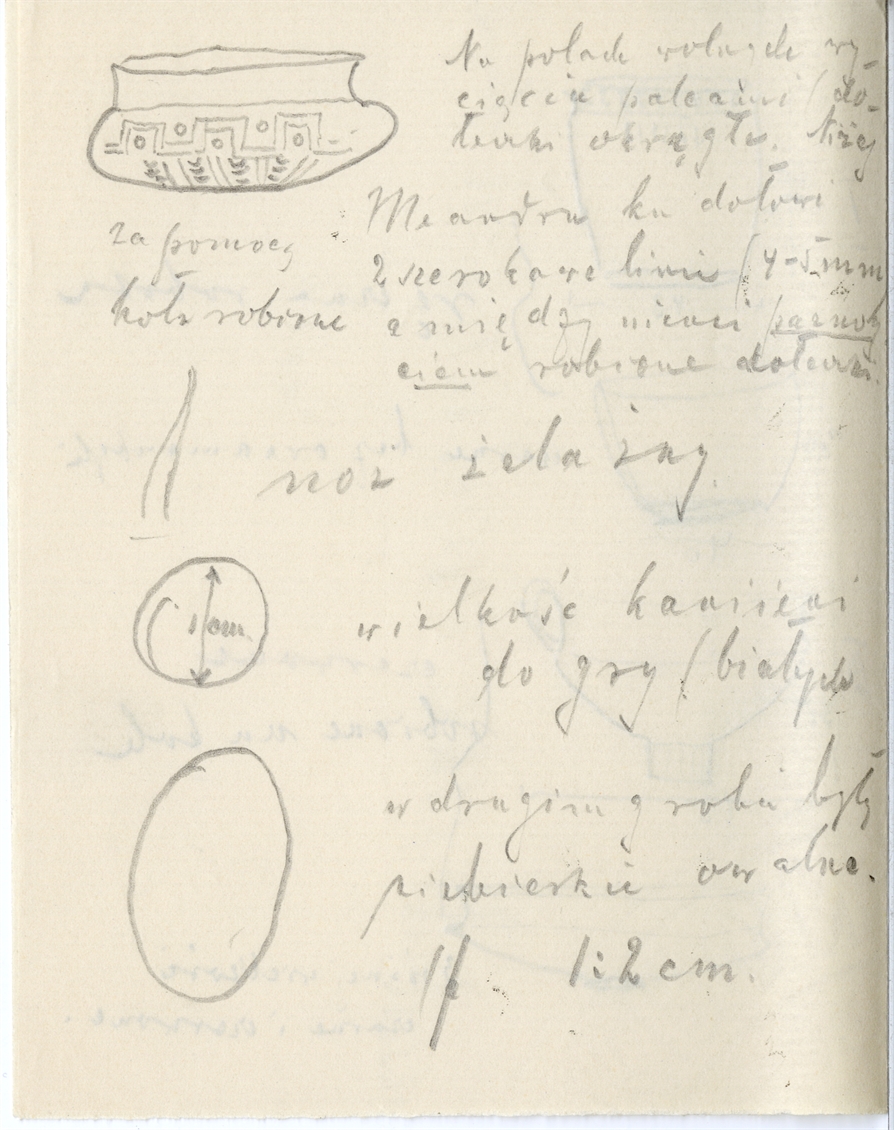 Na polach wolnych wy-
cięcia palcami (do-
łeczki okrągłe. Niżej
Meandru ku dołowi
2 szerokawe linie (4-5mm
a między niemi paznog
ciem robione dołeczki.
za pomocą
koła robione
noz żelazny.
1 cm.
wielkość kamieni
do gry (białych
w drugim grobie były
niebieskie owalne.
1:2 cm.